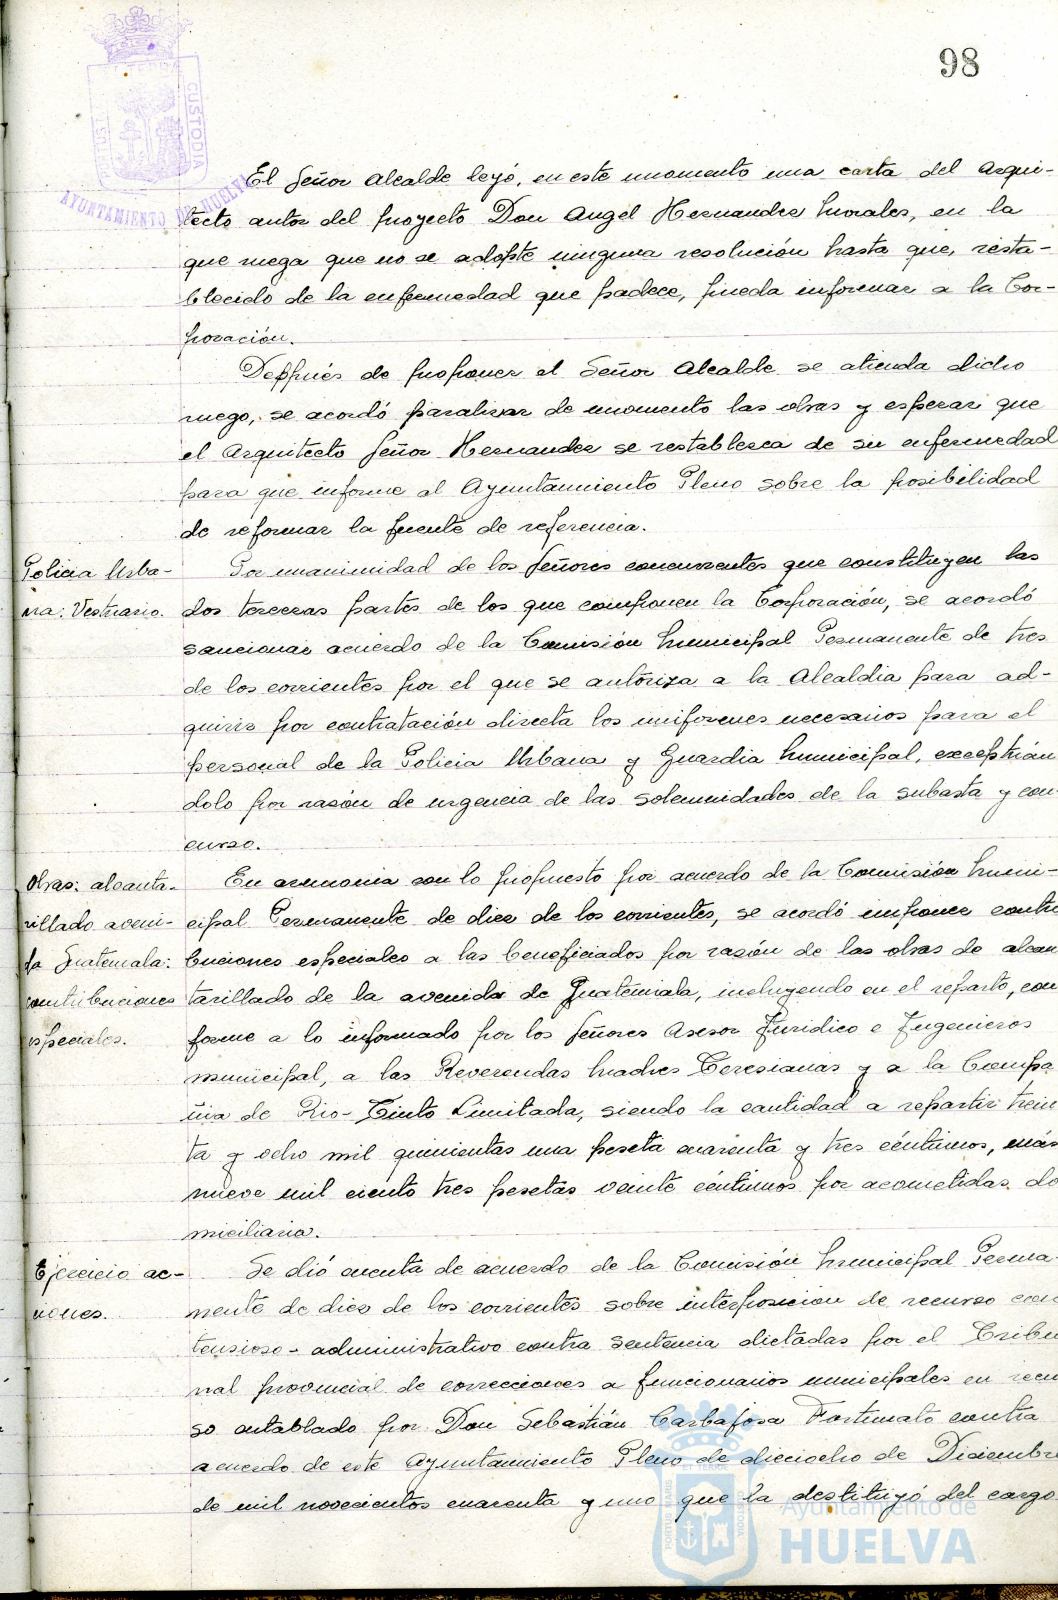 98
CUSTODIA
AYUNTAMIENTO DE HUELVA
El Señor Alcalde leyó, en este momento una carta del Arqui-
tecto autor del proyecto Don Angel Hernandez Morales, en la
que ruega que no se adopte ninguna resolución hasta que, resta-
blecido de la enfermedad que padece, pueda informar a la Cor-
poración.
Después de proponer el Señor Alcalde se atienda dicho
ruego, se acordó paralizar de momento las obras y esperar que
el Arquitecto Señor Hernandez se restablezca de su enfermedad
para que informe al Ayuntamiento Pleno sobre la posibilidad
de reformar la fuente de referencia.
Policia Urba-
na: Vestuario.
Por unanimidad de los Señores concurrentes que constituyen las
dos terceras partes de los que componen la Corporación, se acordó
sancionar acuerdo de la Comisión Municipal Permanente de tres
de los corrientes por el que se autoriza a la Alcaldia para ad-
quirir por contratación directa los uniformes necesarios para el
personal de la Policia Urbana y Guardia Municipal, exceptuán
dolo por razón de urgencia de las solemnidades de la subasta y con-
curso.
Obras: alcanta-
rillado aveni-
da Guatemala:
contribuciones
especiales.
En armonia con lo propuesto por acuerdo de la Comisión Muni-
cipal Permanente de diez de los corrientes, se acordó imponer contri
buciones especiales a las beneficiados por razón de las obras de alcan
tarillado de la avenida de Guatemala, incluyendo en el reparto, con
forme a lo informado por los Señores Asesor Juridico e Ingenieros
municipal, a las Reverendas Madres Teresianas y a la Compa
ñia de Rio-Tinto Limitada, siendo la cantidad a repartir trein
ta y ocho mil quinientas una peseta cuarenta y tres céntimos, más
nueve mil ciento tres pesetas veinte céntimos por acometidas do
miciliaria.
Ejercicio ac-
ciones.
Se dió cuenta de acuerdo de la Comisión Municipal Perma-
nente de diez de los corrientes sobre interposicion de recurso con
tensioso-administrativo contra sentencia dictadas por el Tribu
nal provincial de correcciones a funcionarios municipales en recur
so entablado por Don Sebastián Carbajosa Fortunato contra
acuerdo de este Ayuntamiento Pleno de dieciocho de Diciembre
de mil novecientos cuarenta y uno que la destituyó del cargo
Ayuntamiento de
HUELVA